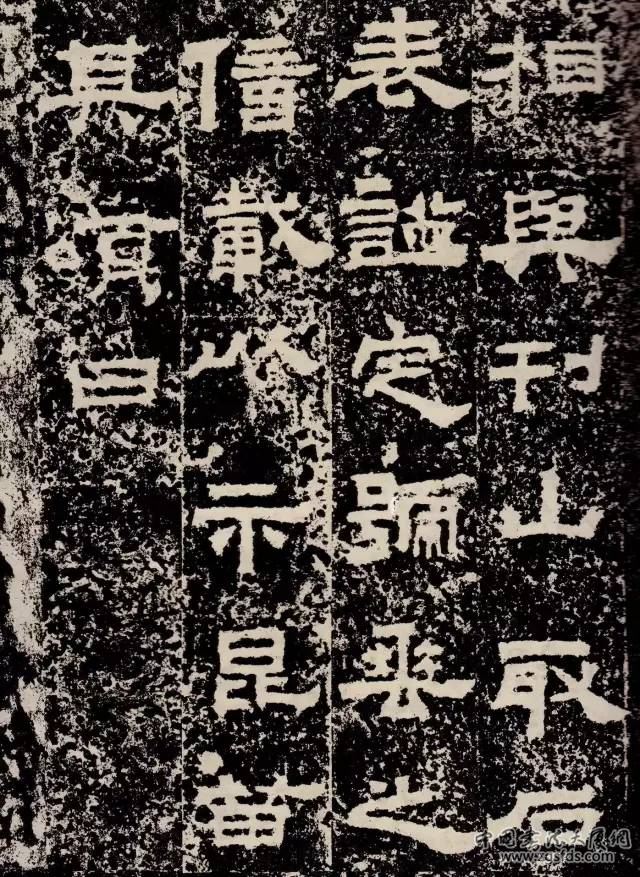 相與刊山取石
表謚定號垂之
億載以示昆苗
其頌曰
中国书法大展网
www.zgsfds.com